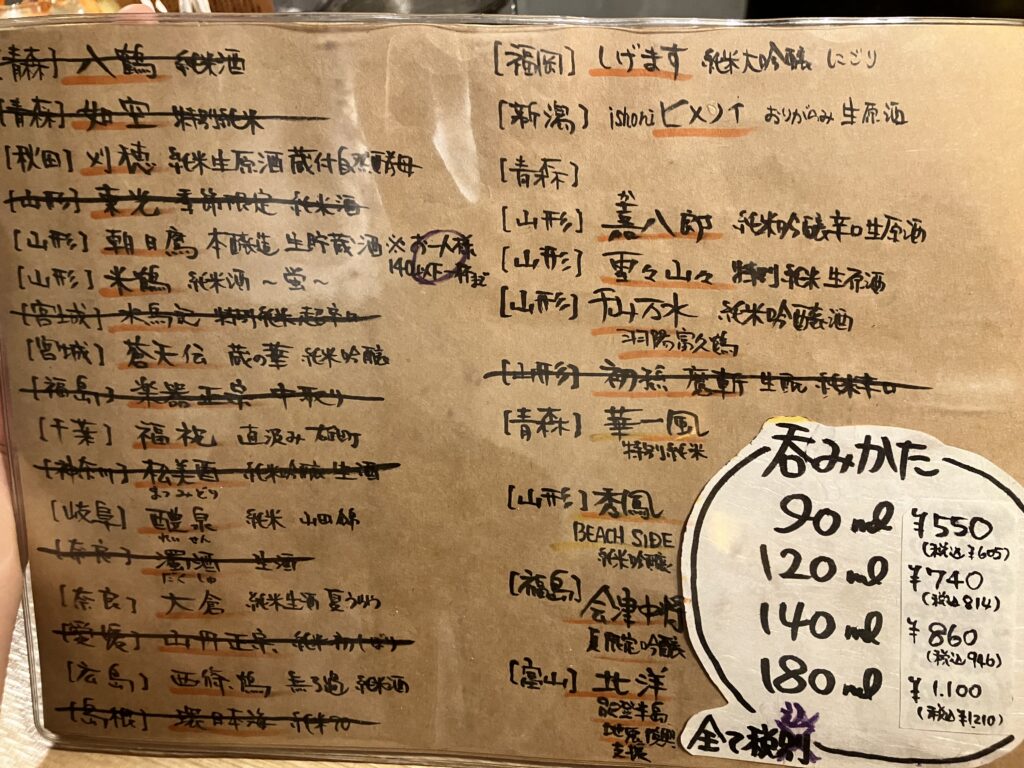 [青森] 八鶴 純米酒
[青森] 如空 特別純米
[秋田] 刈穂 純米生原酒 蔵付自然酵母
[山形] 東光 季節限定 純米酒
[山形] 朝日鷹 本醸造 生貯蔵酒 ※お一人様
140以下一杯まで
[山形] 米鶴 純米酒 ~蛍~
[宮城] 特別純米 超辛口
[宮城] 蒼天伝 蔵の華 純米吟醸
[福島] 楽器正宗 中取り
[千葉] 福祝 直汲み 雄町
[神奈川] 松美酉 純米吟醸 生酒
まつみどり
[岐阜] 醴泉 純米 山田錦
れいせん
[奈良] 濁酒 生酒
だくしゅ
[奈良] 大倉 純米生酒 夏うらら
[愛媛] 山丹正宗 純米初しぼり
[広島] 西條鶴 無ろ過 純米酒
[島根] 環日本海 純米70
[福岡] しげます 純米大吟醸 にごり
[新潟] ishoniヒメノイ おりがらみ 生原酒
[青森]
か
[山形] 嘉八郎 純米吟醸辛口生原酒
[山形] 重々山々 特別純米生原酒
[山形] 千山万水 純米吟醸酒
羽陽富久鶴
[山形] 初孫 魔斬 生酛 純米辛口
[青森] 華一風
特別純米
[山形] 秀鳳
BEACH SIDE
純米吟醸
[福島]
会津中将
夏限定吟醸
[富山] 北洋
能登半島
地震復興
支援
呑みかた
90ml ¥550
(税込¥605)
120ml ¥740
(税込814)
140ml ¥860
(税込946)
180ml ¥1.100
(税込¥1210)
全て税別